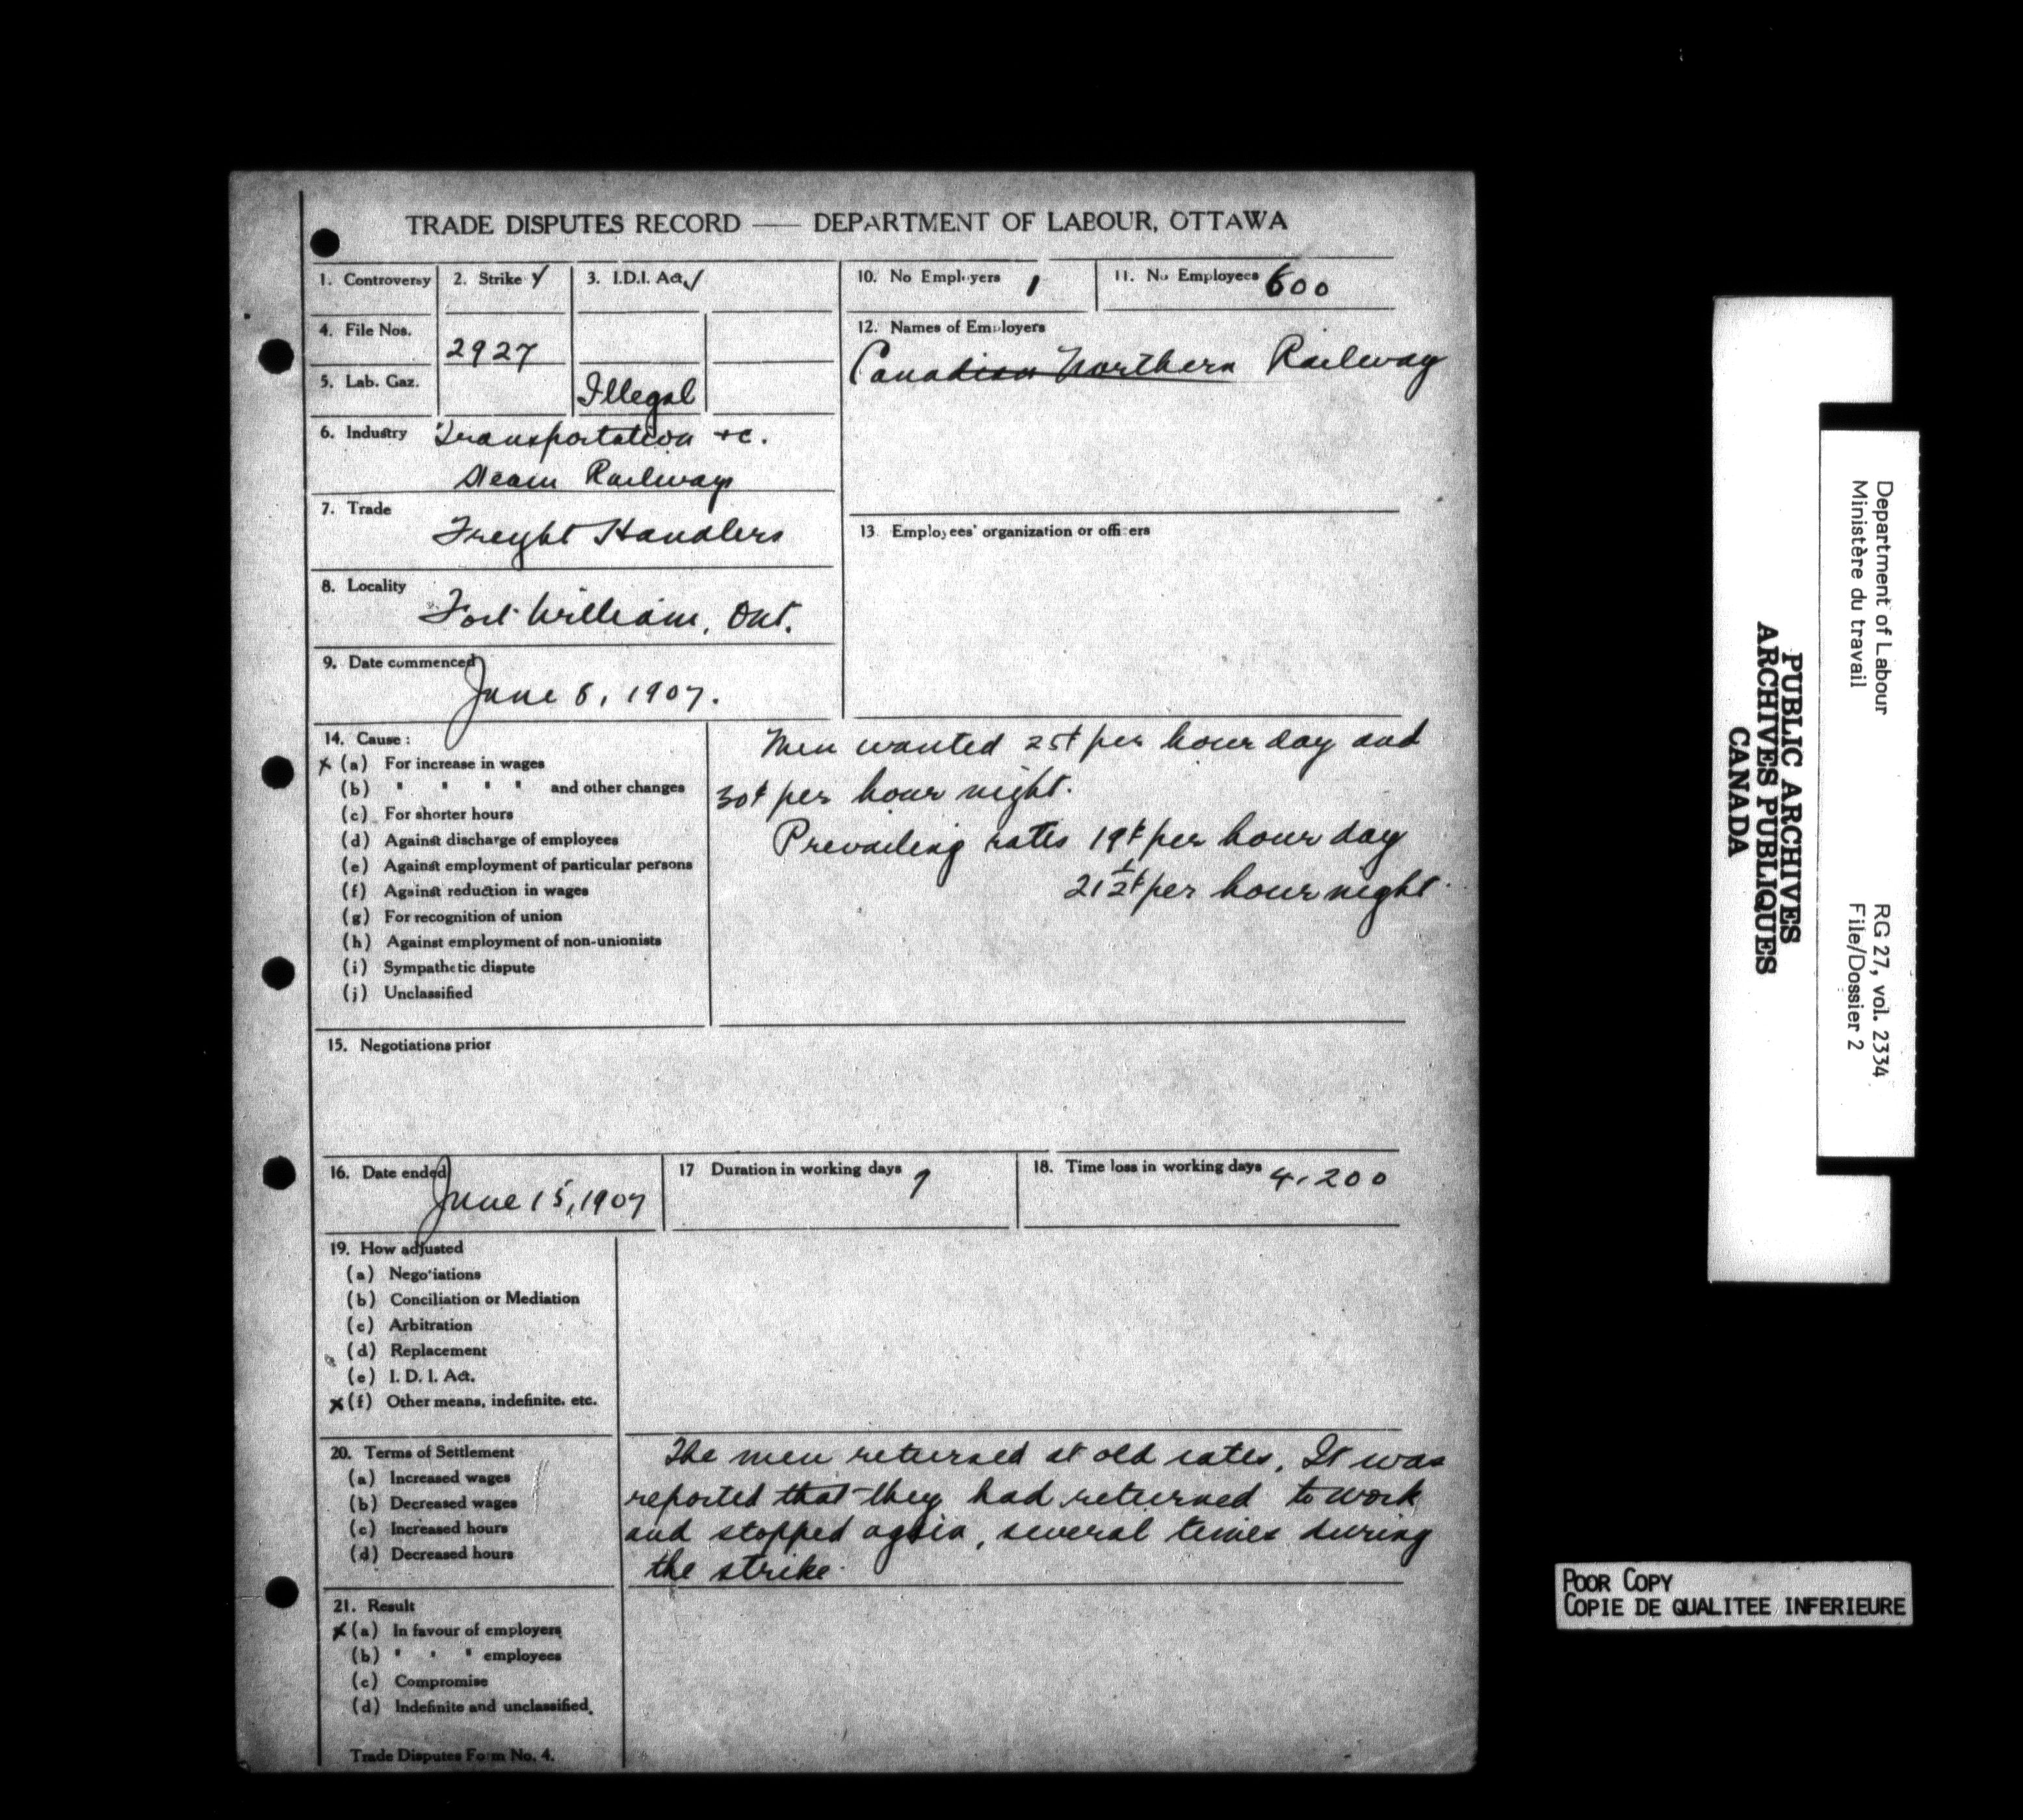 TRADE DISPUTES RECORD — DEPARTMENT OF LABOUR, OTTAWA
1. Controversy
2. Strike ✓
3. I.D.I. Act ✓
10. No Employers 1
11. No Employees 600
4. File Nos. 2927
12. Names of Employers
Canadian Northern Railway
5. Lab. Gaz.
Illegal
6. Industry Transportation &c.
Steam Railways
7. Trade
Freight Handlers
13. Employees' organization or officers
8. Locality
Fort William, Ont.
9. Date commenced
June 8, 1907.
14. Cause :
x (a) For increase in wages
(b) " " " " and other changes
(c) For shorter hours
(d) Against discharge of employees
(e) Against employment of particular persons
(f) Against reduction in wages
(g) For recognition of union
(h) Against employment of non-unionists
(i) Sympathetic dispute
(j) Unclassified
Men wanted 25¢ per hour day and
30¢ per hour night.
Prevailing rates 19¢ per hour day
21½¢ per hour night.
15. Negotiations prior
16. Date ended
June 15, 1907
17 Duration in working days 7
18. Time loss in working days 4,200
19. How adjusted
(a) Negotiations
(b) Conciliation or Mediation
(c) Arbitration
(d) Replacement
(e) I. D. I. Act.
x (f) Other means, indefinite, etc.
20. Terms of Settlement
(a) Increased wages
(b) Decreased wages
(c) Increased hours
(d) Decreased hours
The men returned at old rates. It was
reported that they had returned to work
and stopped again, several times during
the strike.
21. Result
x (a) In favour of employers
(b) " " " employees
(c) Compromise
(d) Indefinite and unclassified.
Trade Disputes Form No. 4.
PUBLIC ARCHIVES
ARCHIVES PUBLIQUES
CANADA
Department of Labour
Ministère du travail
RG 27, vol. 2334
File/Dossier 2
POOR COPY
COPIE DE QUALITEE INFERIEURE